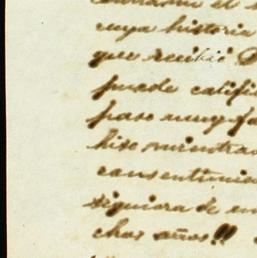 cuya historia
que recibió
puede califi
paso muy fa
hizo mientras
consentimien
siquiera de un
chos años!!